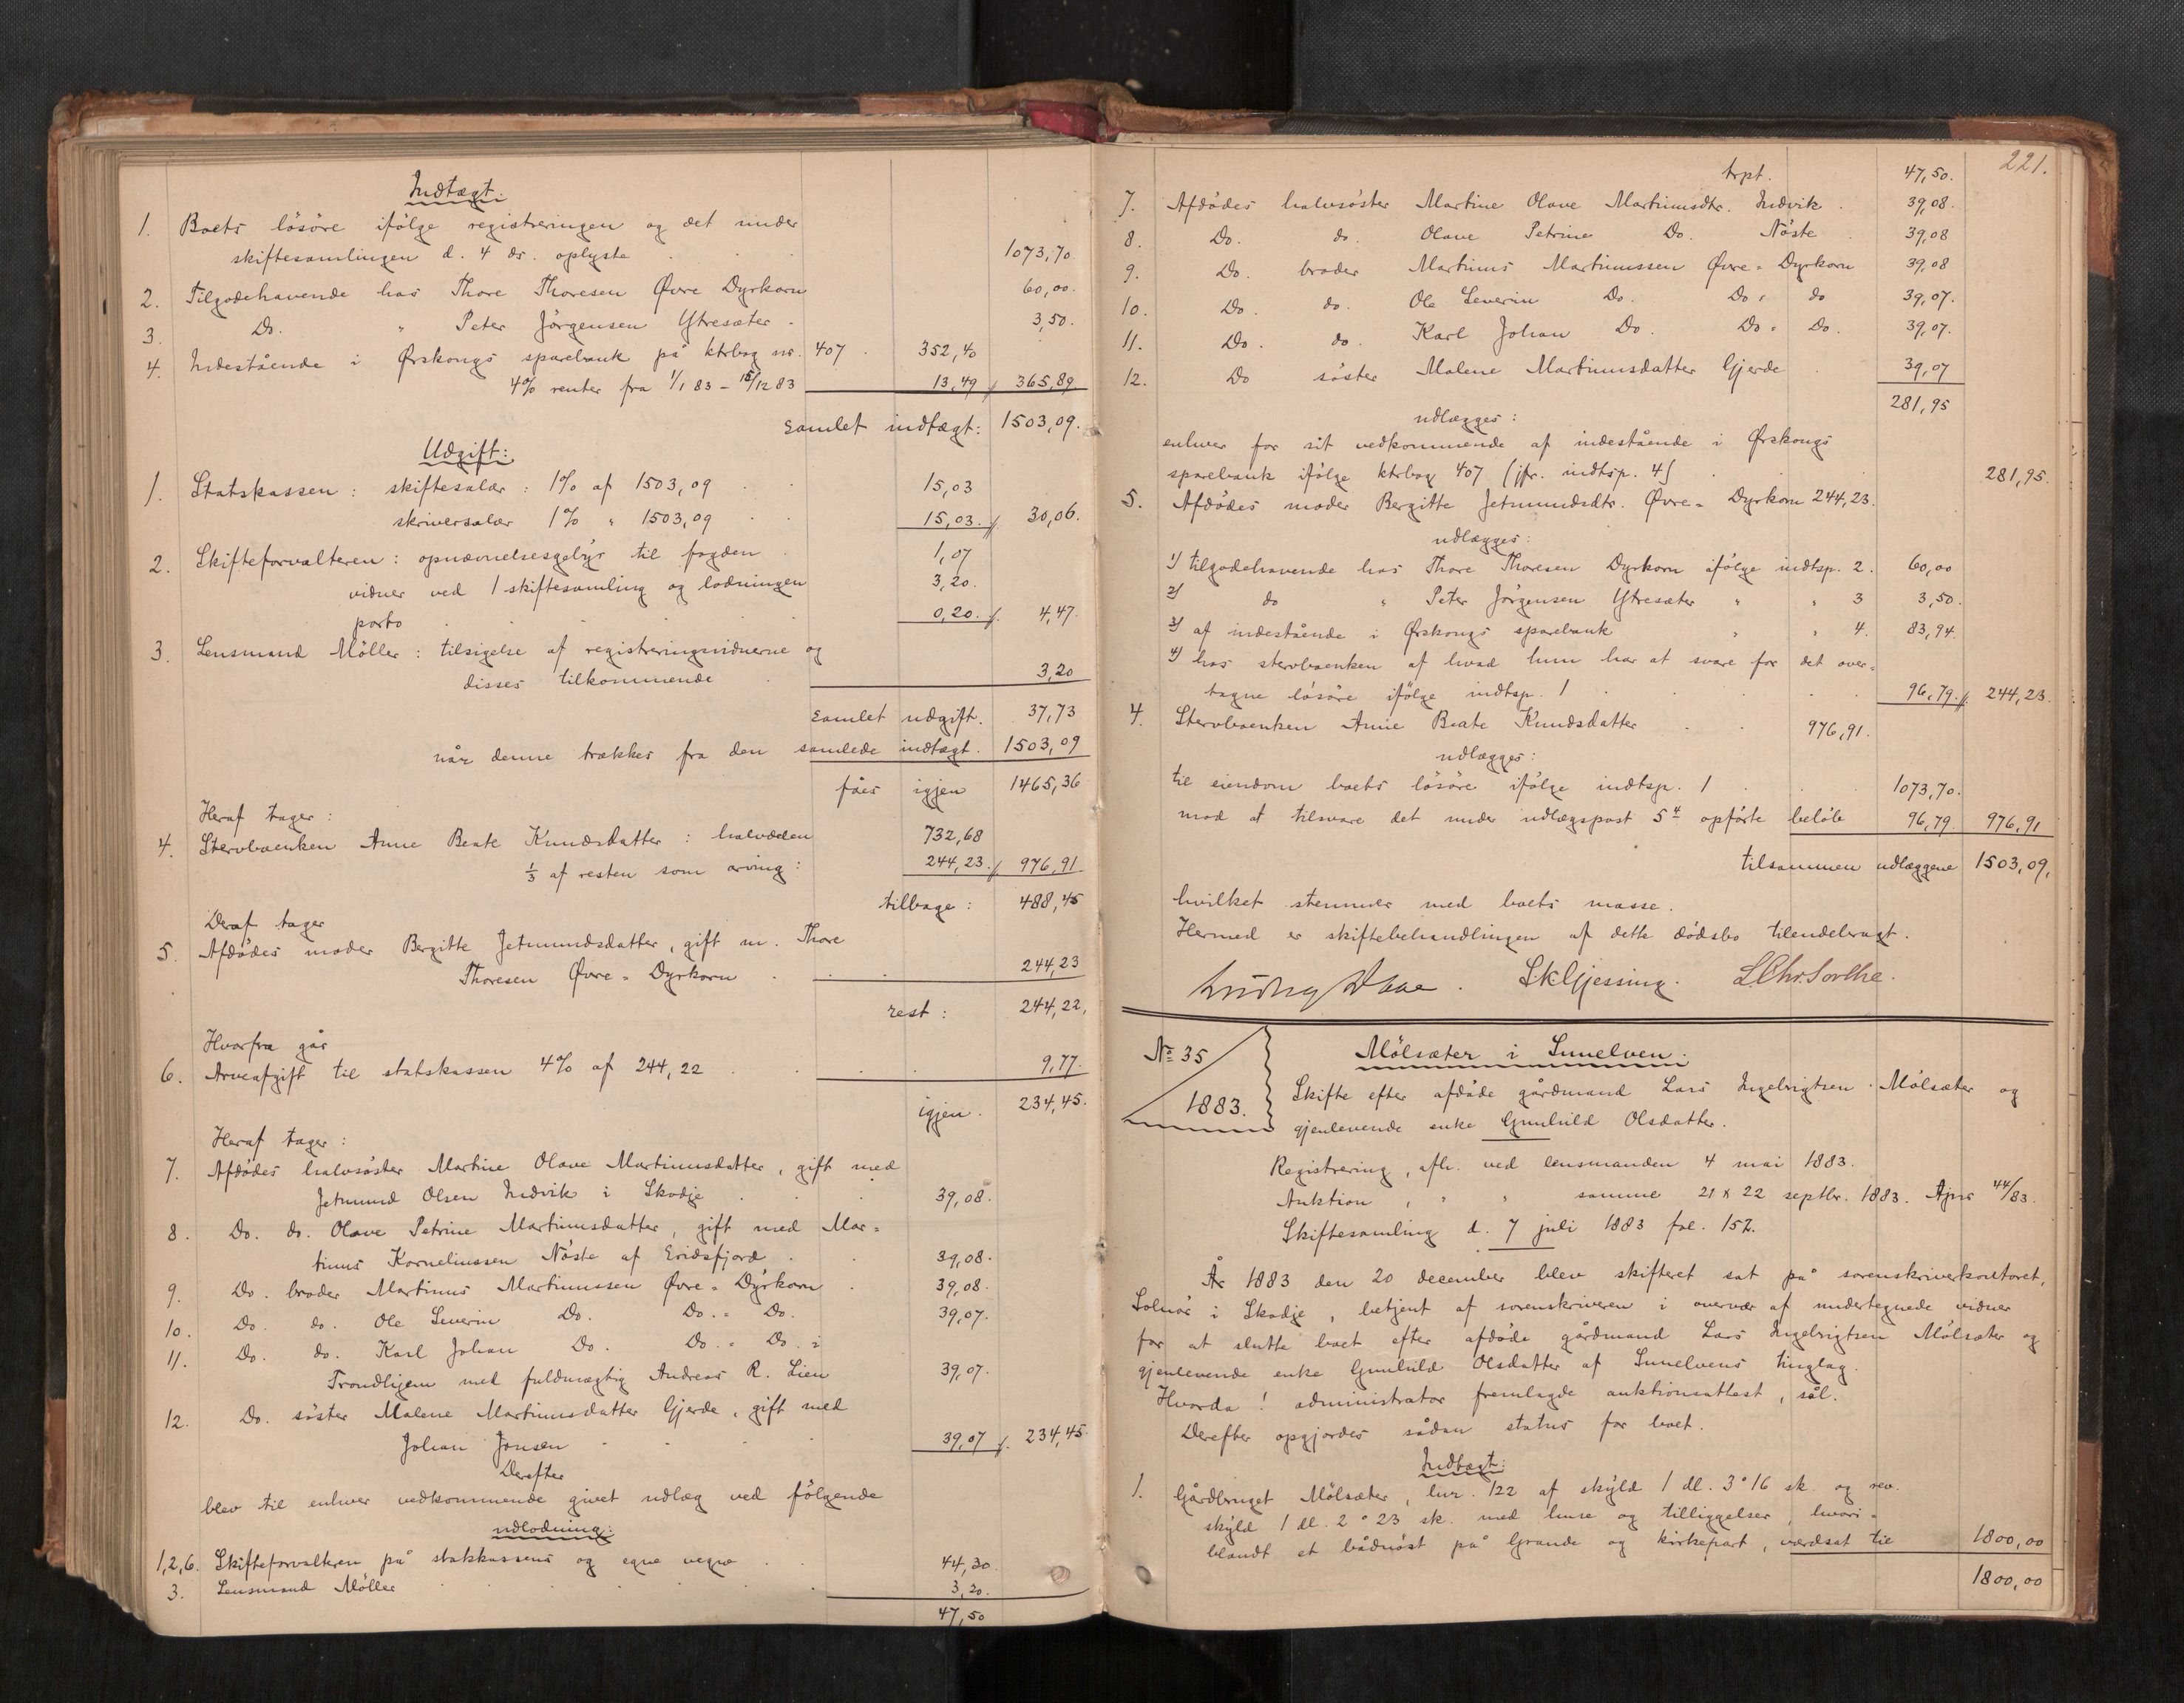 Indtægt:
1. Boets lösöre ifölge registreringen og det under
skiftesamlingen d. 4 ds. oplyste . . . 1073,70.
2. Tilgodehavende hos Thore Thoresen Øvre Dyrkorn 60,00.
3. Do. " Peter Jörgensen Ytresæter . 3,50.
4. Indestående i Ørskougs sparebank på ktrbog nr. 407 . 352,40
4% renter fra 1/1 83 - 15/12 83 13,49 /. 365,89
Samlet indtægt: 1503,09.
Udgift:
1. Statskassen: skiftesalær: 1% af 1503,09 . . 15,03
skriversalær 1% " 1503,09 . . 15,03. /. 30,06.
2. Skifteforvalteren: opnævnelsesgebyr til fogden . 1,07
vidner ved 1 skiftesamling og lodningen 3,20.
porto . . . 0,20. /. 4,47.
3. Lensmand Möller: tilsigelse af registreringsvidnerne og
disses tilkommende . 3,20
samlet udgift. 37,73
når denne trækkes fra den samlede indtægt. 1503,09
fåes igjen 1465,36
Heraf tager:
4. Stervboenken Anne Beate Knudsdatter: halvdelen 732,68
1/3 af resten som arving: 244,23. /. 976,91
tilbage: 488,45
Deraf tager
5. Afdödes moder Bergitte Jetmundsdatter, gift m. Thore
Thoresen Øvre-Dyrkorn . . . 244,23
rest: 244,22.
Hvorfra går
6. Arveafgift til statskassen 4% af 244,22 . . . 9,77.
igjen. 234,45.
Heraf tager:
7. Afdödes halvsöster Martine Olave Martinusdatter, gift med
Jetmund Olsen Indvik i Skodje . . . 39,08.
8. Do. do. Olave Petrine Martinusdatter, gift med Mar-
tinus Korneliussen Nöste af Eridsfjord . . 39,08.
9. Do. broder Martinus Martinussen Øvre-Dyrkorn . 39,08.
10. Do. do. Ole Severin Do. Do.- Do. 39,07.
11. Do. do. Karl Johan Do. Do.- Do. i
Trondhjem med fuldmægtig Andreas R. Lien 39,07.
12. Do. söster Malene Martinusdatter Gjerde, gift med
Johan Jonsen . . . 39,07 /. 234,45.
Derefter
blev til enhver vedkommende givet udlæg ved fölgende
udlodning:
1,2,6. Skifteforvalteren på statskassens og egne vegne . . 44,30.
3. Lensmand Möller . . . 3,20.
47,50
221.
trpt. 47,50.
7. Afdödes halvsöster Martine Olave Martinusdtr. Indvik . 39,08.
8. Do. do. Olave Petrine Do. Nöste . 39,08
9. Do. broder Martinus Martinussen Øvre-Dyrkorn 39,08
10. Do. do. Ole Severin Do. Do. - do 39,07.
11. Do. do. Karl Johan Do. Do. - Do. 39,07.
12. Do söster Malene Martinusdatter Gjerde . 39,07
281,95
udlægges:
enhver for sit vedkommende af indestående i Ørskougs
sparebank ifölge ktrbog 407 (jfr. indtsp. 4) . . 281,95.
5. Afdödes moder Bergitte Jetmundsdtr. Øvre-Dyrkorn 244,23.
udlægges:
1) tilgodehavende hos Thore Thoresen Dyrkorn ifölge indtsp. 2. 60,00
2) do " Peter Jörgensen Ytresæter " " 3 3,50.
3) af indestående i Ørskougs sparebank " " 4. 83,94.
4) hos stervboenken af hvad hun har at svare for det over-
tagne lösöre ifölge indtsp. 1 . . . 96,79. /. 244,23.
4. Stervboenken Anne Beate Knudsdatter . . 976,91.
udlægges:
til eiendom boets lösöre ifölge indtsp. 1 . . 1073,70.
mod at tilsvare det under udlægspost 5 4 opförte belöb 96,79. 976,91
tilsammen udlæggene 1503,09.
hvilket stemmer med boets masse.
Hermed er skiftebehandlingen af dette dödsbo tilendebragt.
Ludvig Daae. S. K. Gjessing. L. Chr. Sorthe.
No 35
1883.
Mölsæter i Sunelven.
Skifte efter afdöde gårdmand Lars Ingebrigtsen Mölsæter og
gjenlevende enke Gunhild Olsdatter.
Registrering, afh. ved lensmanden 4 mai 1883.
Auktion, " " samme 21 & 22 septbr. 1883. Ajns 44/83.
Skiftesamling d. 7 juli 1883 fol. 157.
År 1883 den 20 december blev skifteret sat på sorenskriverkontoret,
Solnör i Skodje, betjent af sorenskriveren i overvær af undertegnede vidner
for at slutte boet efter afdöde gårdmand Lars Ingebrigtsen Mölsæter og
gjenlevende enke Gunhild Olsdatter af Sunelvens tinglag.
Hvorda! administrator fremlagde auktionsattest, sål.
Derefter opgjordes sådan status for boet.
Indtægt:
1. Gårdbruget Mölsæter, lnr. 122 af skyld 1 dl. 3 ° 16 sk. og rev.
skyld 1 dl. 2 ° 23 sk. med huse og tilliggelser, hvori-
blandt et bådnöst på Grande og kirkepart, værdsat til 1800,00
1800,00